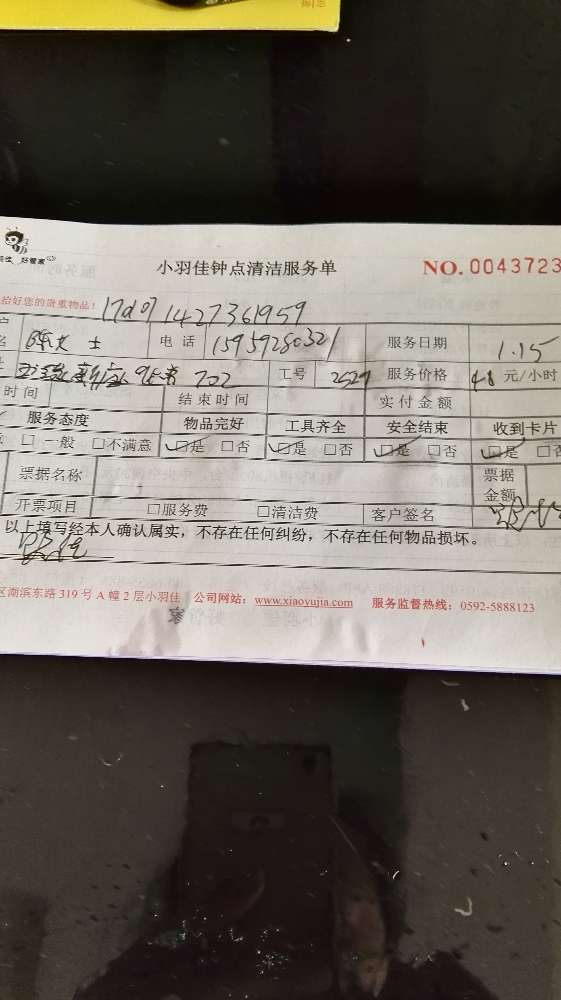 好管家
小羽佳钟点清洁服务单
NO. 0043723
拾好您的贵重物品！
女士 电话 15959280321 服务日期 1.15
702 工号 2529 服务价格 48 元/小时
时间 结束时间 实付金额
服务态度 物品完好 工具齐全 安全结束 收到卡片
□一般 □不满意 ☑是 □否 ☑是 □否 ☑是 □否 ☑是
票据名称 票据金额
开票项目 □服务费 □清洁费 客户签名
以上填写经本人确认属实，不存在任何纠纷，不存在任何物品损坏。
区湖滨东路 319 号 A 幢 2 层小羽佳 公司网站：www.xiaoyujia.com 服务监督热线：0592-5888123